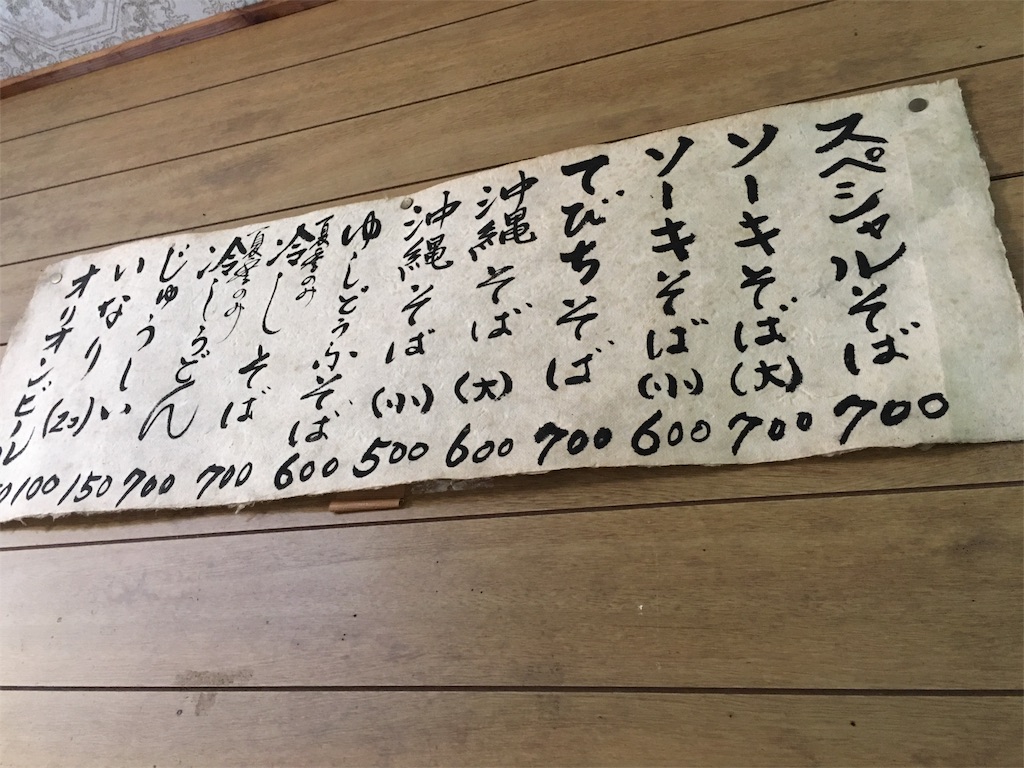 スペシャルそば 700
ソーキそば(大) 700
ソーキそば(小) 600
てびちそば 700
沖縄そば(大) 600
沖縄そば(小) 500
ゆしどうふそば 600
夏季のみ
冷しそば 700
夏季のみ
冷しうどん 700
じゅうしい 150
いなり(2コ) 100
オリオンビール